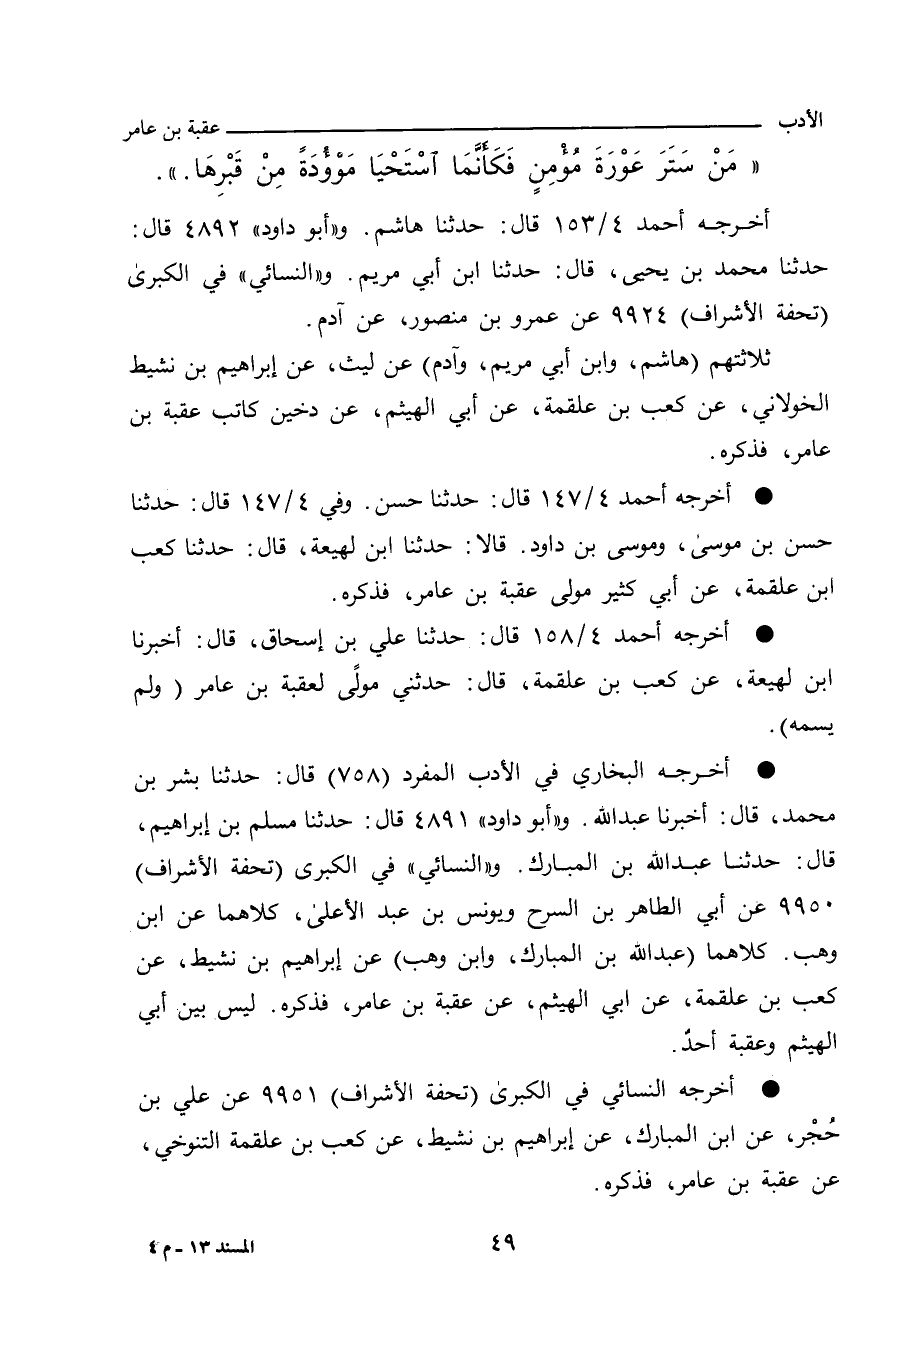 الأدب ــــــــــــــــــــ عقبة بن عامر
« مَنْ سَتَرَ عَوْرَةَ مُؤْمِنٍ فَكَأَنَّمَا ٱسْتَحْيَا مَوْؤُدَةً مِنْ قَبْرِهَا.».
أخرجه أحمد ٤/١٥٣ قال: حدثنا هاشم. و«أبو داود» ٤٨٩٢ قال:
حدثنا محمد بن يحيى، قال: حدثنا ابن أبي مريم. و«النسائي» في الكبرىٰ
(تحفة الأشراف) ٩٩٢٤ عن عمرو بن منصور، عن آدم.
ثلاثتهم (هاشم، وابن أبي مريم، وآدم) عن ليث، عن إبراهيم بن نشيط
الخولاني، عن كعب بن علقمة، عن أبي الهيثم، عن دخين كاتب عقبة بن
عامر، فذكره.
● أخرجه أحمد ٤/١٤٧ قال: حدثنا حسن. وفي ٤/١٤٧ قال: حدثنا
حسن بن موسىٰ، وموسى بن داود. قالا: حدثنا ابن لهيعة، قال: حدثنا كعب
ابن علقمة، عن أبي كثير مولى عقبة بن عامر، فذكره.
● أخرجه أحمد ٤/١٥٨ قال: حدثنا علي بن إسحاق، قال: أخبرنا
ابن لهيعة، عن كعب بن علقمة، قال: حدثني مولًى لعقبة بن عامر ( ولم
يسمه).
● أخرجه البخاري في الأدب المفرد (٧٥٨) قال: حدثنا بشر بن
محمد، قال: أخبرنا عبدالله. و«أبو داود» ٤٨٩١ قال: حدثنا مسلم بن إبراهيم،
قال: حدثنا عبدالله بن المبارك. و«النسائي» في الكبرى (تحفة الأشراف)
٩٩٥٠ عن أبي الطاهر بن السرح ويونس بن عبد الأعلىٰ، كلاهما عن ابن
وهب. كلاهما (عبدالله بن المبارك، وابن وهب) عن إبراهيم بن نشيط، عن
كعب بن علقمة، عن ابي الهيثم، عن عقبة بن عامر، فذكره. ليس بين أبي
الهيثم وعقبة أحدٌ.
● أخرجه النسائي في الكبرىٰ (تحفة الأشراف) ٩٩٥١ عن علي بن
حُجْر، عن ابن المبارك، عن إبراهيم بن نشيط، عن كعب بن علقمة التنوخي،
عن عقبة بن عامر، فذكره.
٤٩
المسند ١٣ - م ٤